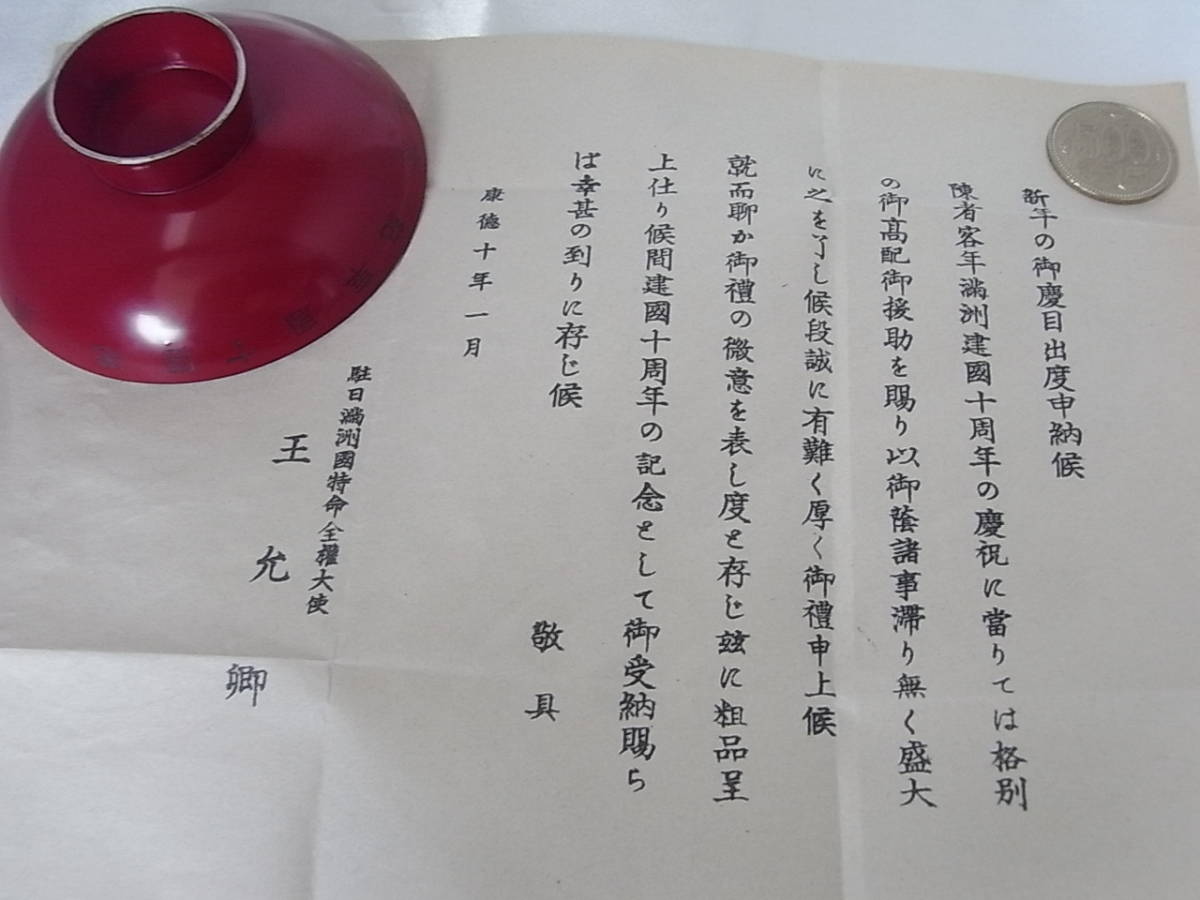 新年の御慶目出度申納候
陳者客年滿洲建國十周年の慶祝に當りては格別
の御高配御援助を賜り以御蔭諸事滯り無く盛大
に之を了し候段誠に有難く厚く御禮申上候
就而聊か御禮の微意を表し度と存じ玆に粗品呈
上仕り候間建國十周年の記念として御受納賜ら
ば幸甚の到りに存じ候
敬具
康德十年一月
駐日滿洲國特命全權大使
王允卿
500